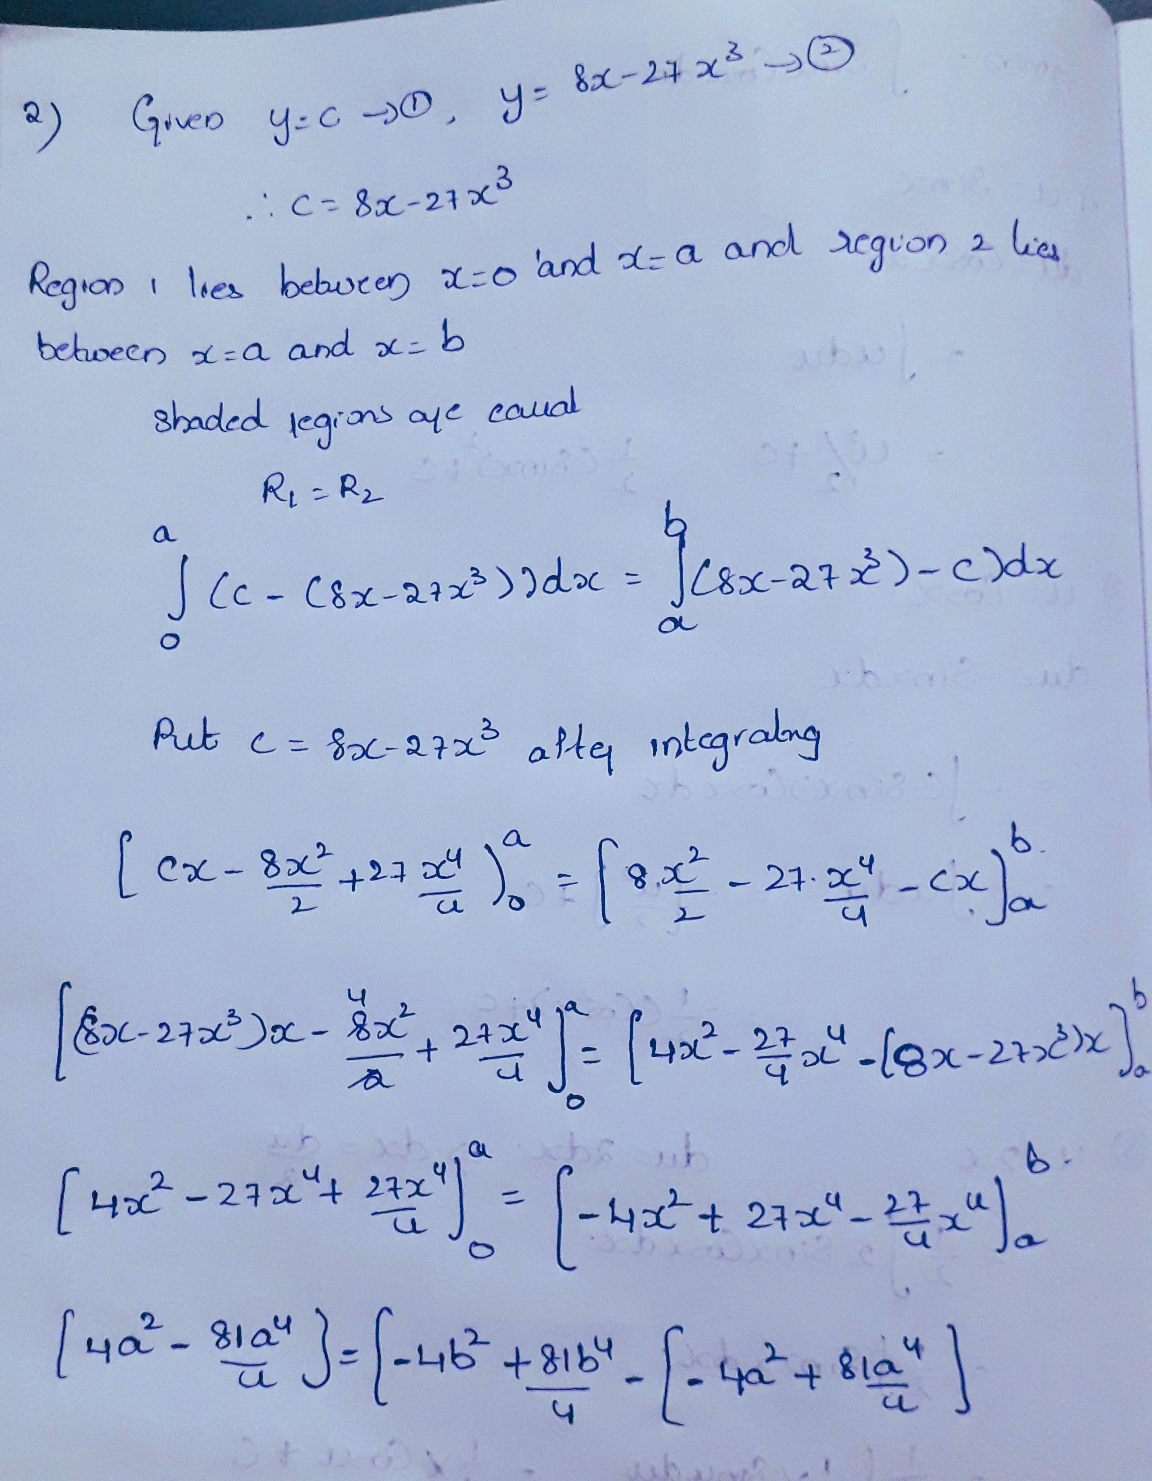 2) Given y=c →①, y= 8x-27x³ →②
∴ c= 8x-27x³
Region 1 lies between x=0 and x=a and region 2 lies
between x=a and x=b
shaded regions are equal
R₁ = R₂
∫₀ᵃ (c - (8x-27x³))dx = ∫ₐᵇ (8x-27x³)-c)dx
Put c = 8x-27x³ after integrating
[cx - 8x²/2 + 27 x⁴/4]₀ᵃ = [8.x²/2 - 27.x⁴/4 - cx]ₐᵇ
[(8x-27x³)x - 8x²/2 + 27x⁴/4]₀ᵃ = [4x² - 27/4 x⁴ - (8x-27x³)x]ₐᵇ
[4x² - 27x⁴ + 27x⁴/4]₀ᵃ = [-4x² + 27x⁴ - 27/4 x⁴]ₐᵇ
[4a² - 81a⁴/4] = [-4b² + 81b⁴/4 - [-4a² + 81a⁴/4]